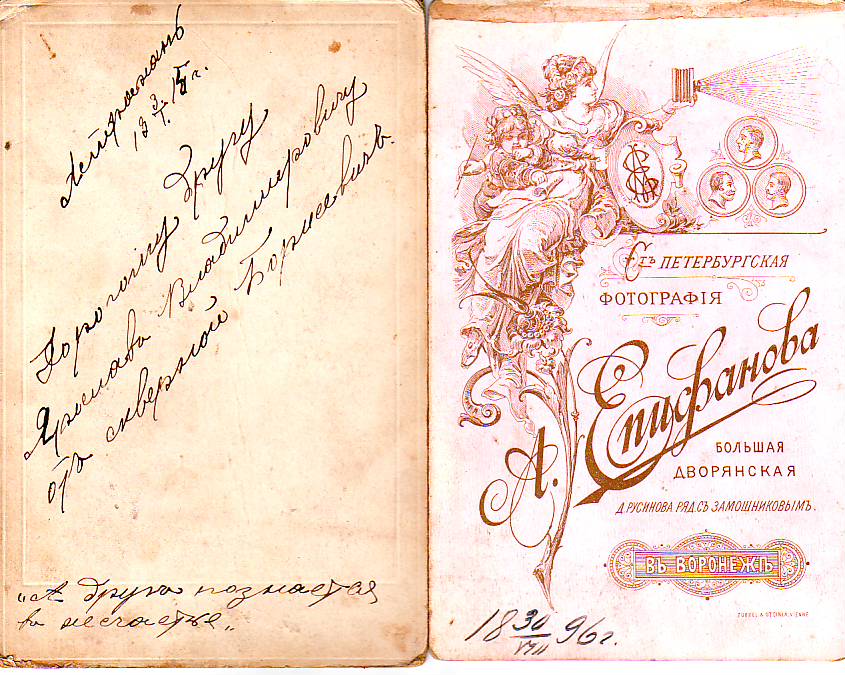 Астрахань
13 3/I 15 г.
Дорогому другу
Ярославу Владимировичу
отъ скверной Борисевичъ.
„А другъ познается
въ несчастье„
Стъ ПЕТЕРБУРГСКАЯ
ФОТОГРАФІЯ
А. Епифанова
БОЛЬШАЯ
ДВОРЯНСКАЯ
Д. РУСИНОВА РЯД. СЪ ЗАМОШНИКОВЫМЪ.
ВЪ ВОРОНЕЖѢ
18 30/VIII 96 г.